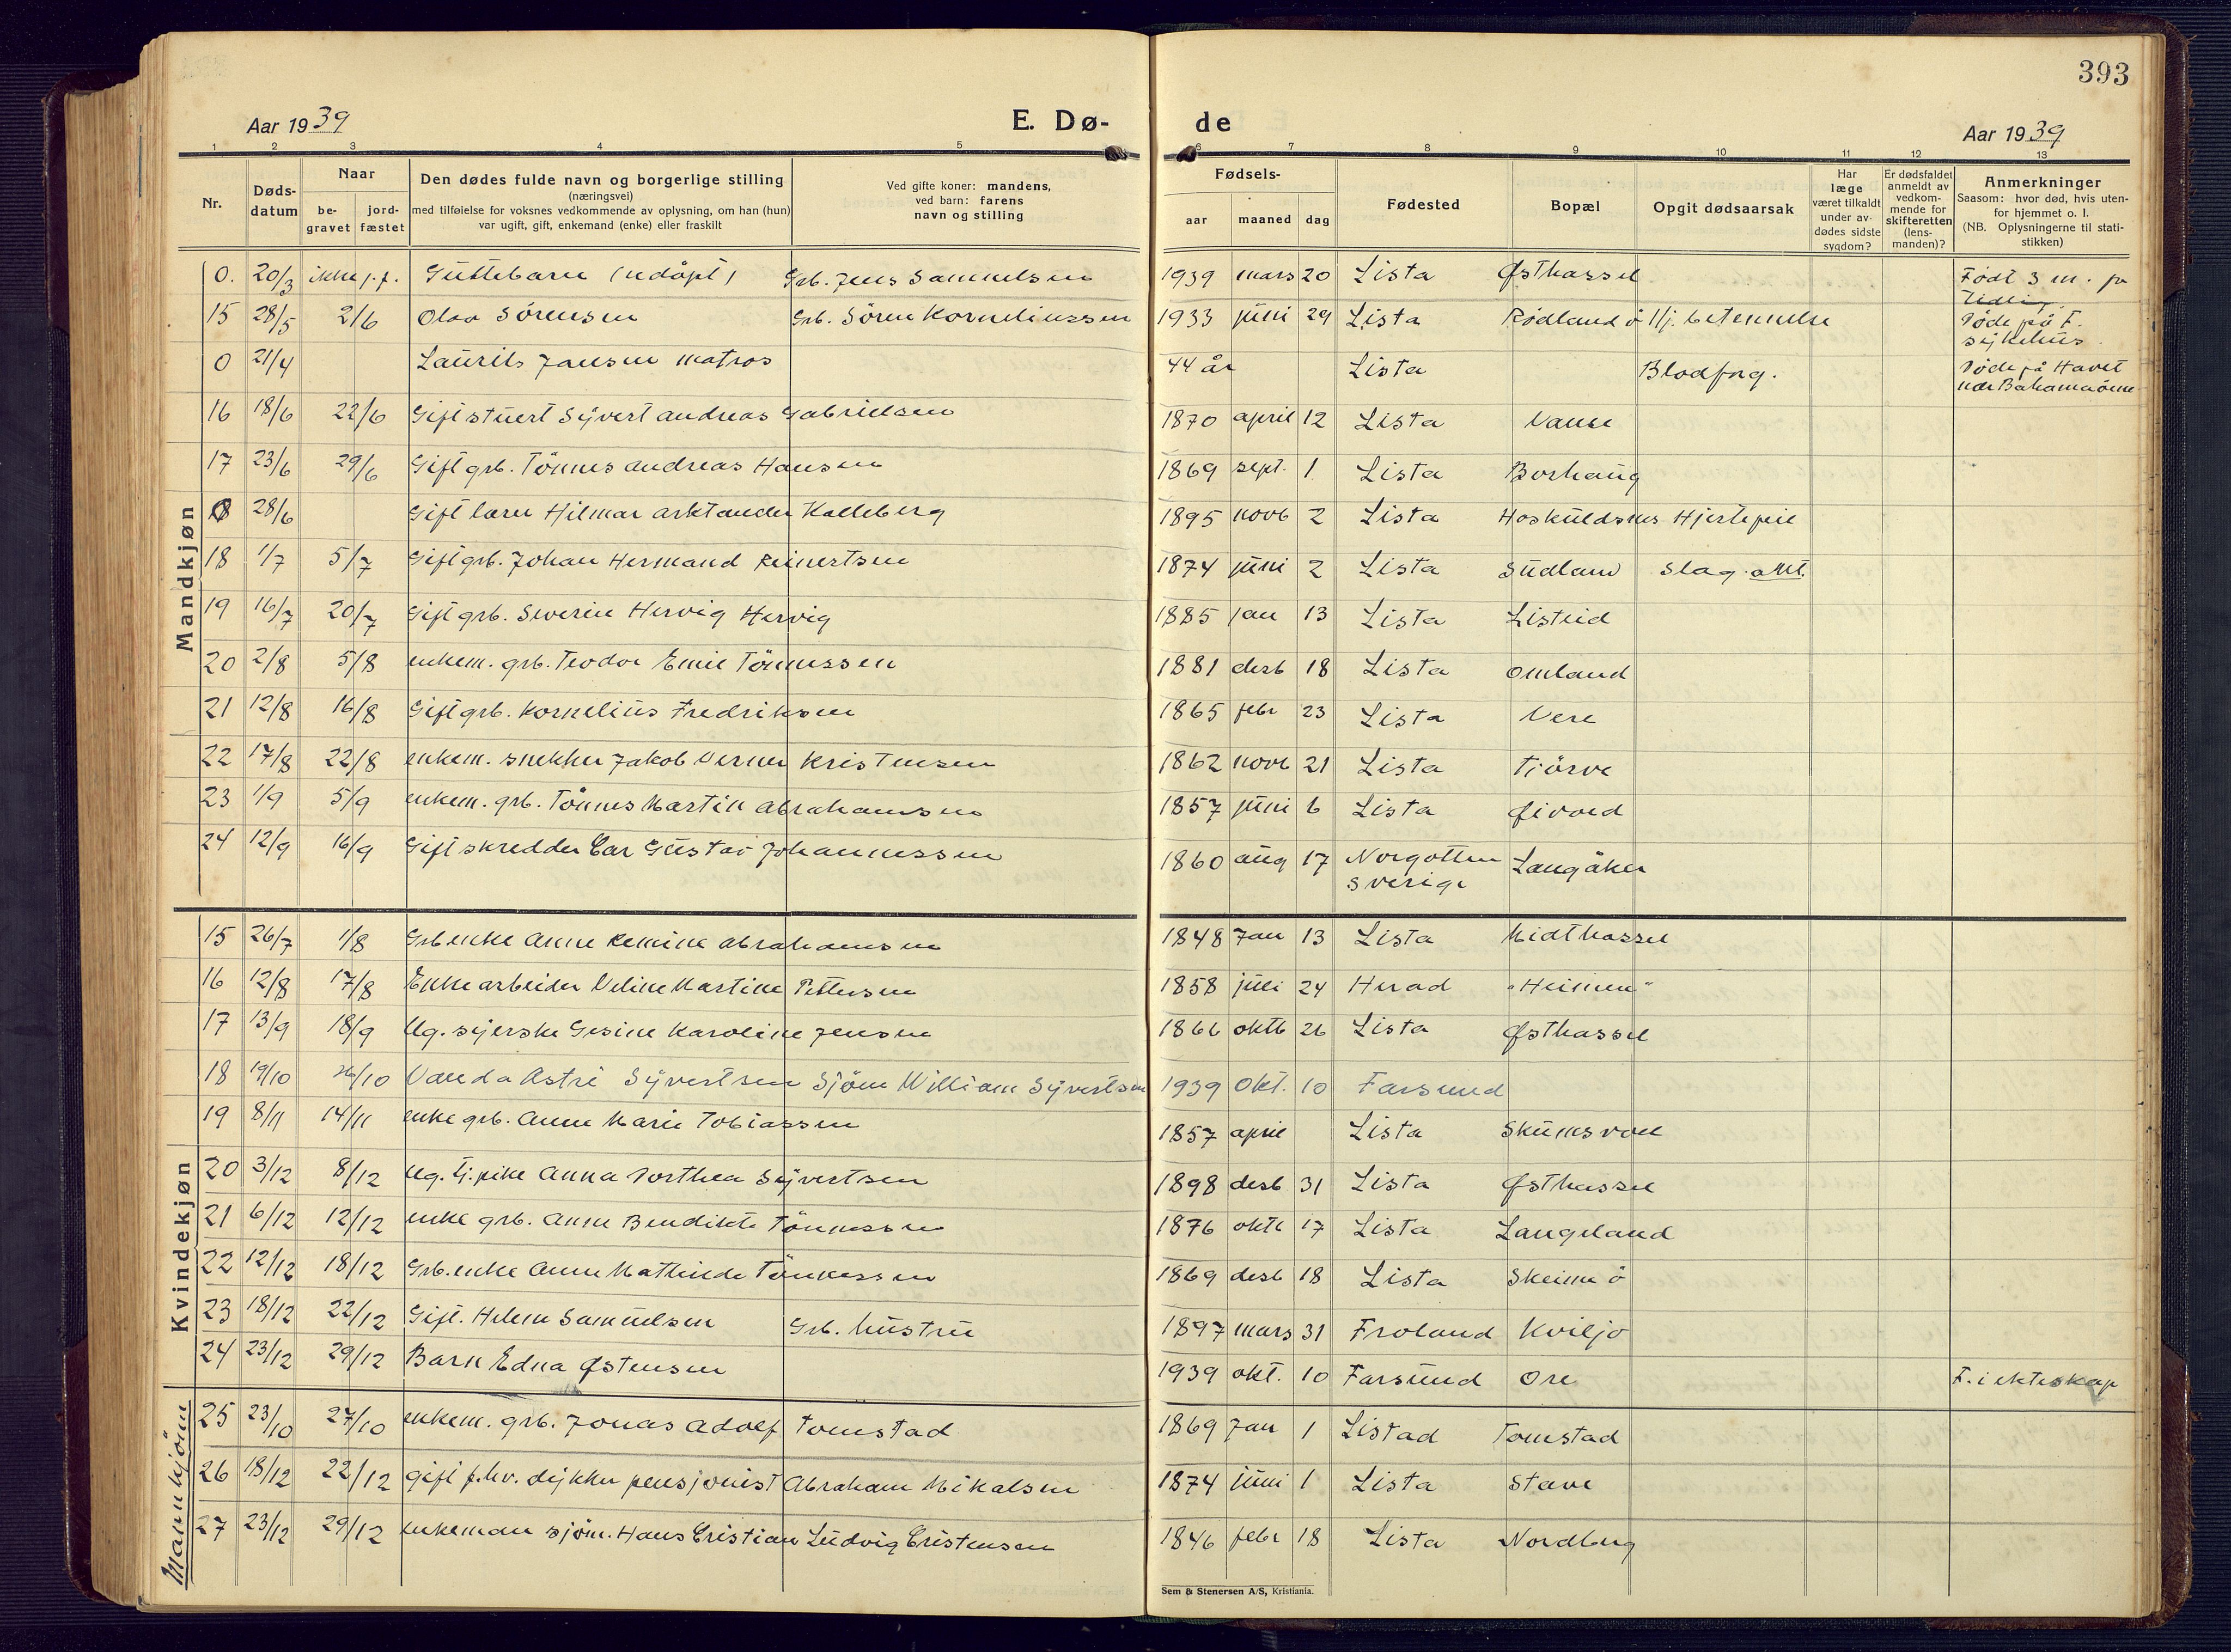 393
Aar 1939 E. Dø- de Aar 1939
1 2 3 4 5 6 7 8 9 10 11 12 13
Nr. Døds-datum Naar be-gravet jord-fæstet Den dødes fulde navn og borgerlige stilling (næringsvei) med tilføielse for voksnes vedkommende av oplysning, om han (hun) var ugift, gift, enkemand (enke) eller fraskilt Ved gifte koner: mandens, ved barn: farens navn og stilling Fødsels- aar maaned dag Fødested Bopæl Opgit dødsaarsak Har læge været tilkaldt under av-dødes sidste sygdom? Er dødsfaldet anmeldt av vedkom-mende for skifteretten (lens-manden)? Anmerkninger Saasom: hvor død, hvis uten-for hjemmet o. l. (NB. Oplysningerne til stati-stikken)
Mandkjøn
0. 20/3 ikke j.f. Guttebarn (udøpt) Grb. Jens Samuelsen 1939 mars 20 Lista Østhassel Født 3 m. for tidlig.
15 28/5 2/6 Olav Sörensen Grb. Sören Korneliussen 1933 juni 29 Lista Rødland ö Hj. betennelse Döde på F. sykehus.
0 21/4 Laurits Jansen matros 44 år Lista Blodforg. Döde på Havet nær Bahamaöene
16 18/6 22/6 Gift stuert Syvert Andreas Gabrielsen 1870 april 12 Lista Vanse
17 23/6 29/6 Gift grb. Tönnes Andreas Hansen 1869 sept. 1 Lista Borhaug
0 28/6 Gift lærer Hilmar Arktander Kalleberg 1895 novb 2 Lista Hoskuldsnes Hjertefeil
18 1/7 5/7 Gift grb. Johan Hermand Reinertsen 1874 juni 2 Lista Sudland Slag. akt.
19 16/7 20/7 Gift grb. Severin Hervig Hervig 1885 jan 13 Lista Listeid
20 2/8 5/8 enkem. grb. Teodor Emil Tönnessen 1881 desb 18 Lista Omland
21 12/8 16/8 Gift grb. Kornelius Fredriksen 1865 febr 23 Lista Vere
22 17/8 22/8 enkem. snekker Jakob Verner Kristensen 1862 novb 21 Lista Tjörve
23 1/9 5/9 enkem. grb. Tönnes Martin Abrahamsen 1857 juni 6 Lista Øivold
24 12/9 16/9 Gift skredder Car Gustav Johannessen 1860 aug 17 Norgotten Sverige Langåker
Kvindekjøn
15 26/7 1/8 Grb enke Anne Remine Abrahamsen 1848 Jan 13 Lista Midthassel
16 12/8 17/8 Enke arbeider Veline Martine Pettersen 1858 juli 24 Herad "Heimen"
17 13/9 18/9 Ug. syerske Gesine Karoline Jensen 1866 oktb 26 Lista Østhassel
18 19/10 26/10 Vanda Astri Syvertsen Sjöm William Syvertsen 1939 Okt. 10 Farsund
19 8/11 14/11 enke grb. Anne Marie Tobiassen 1857 april Lista Skumsvoll
20 3/12 8/12 Ug. tj.pike Anna Dorthea Syvertsen 1898 desb 31 Lista Østhassel
21 6/12 12/12 enke grb. Anne Bendikte Tönnessen 1876 oktb 17 Lista Langeland
22 12/12 18/12 Grb. enke Anne Mathilde Tönnessen 1869 desb 18 Lista Skeime ö
23 18/12 22/12 Gift. Helene Samuelsen Grb. hustru 1897 mars 31 Froland Kviljo
24 23/12 29/12 Barn Edna Østensen 1939 okt. 10 Farsund Ore F. i ekteskap
Mannkjönn
25 23/10 27/10 enkem. grb. Jonas Adolf Tomstad 1869 Jan 1 Listad Tomstad
26 18/12 22/12 gift f.hv. dykker pensjonist Abraham Mikalsen 1874 juni 1 Lista Stave
27 23/12 29/12 enkeman sjöm. Hans Cristian Ludvig Cristensen 1846 febr 18 Lista Nordberg
Sem & Stenersen A/S, Kristiania.